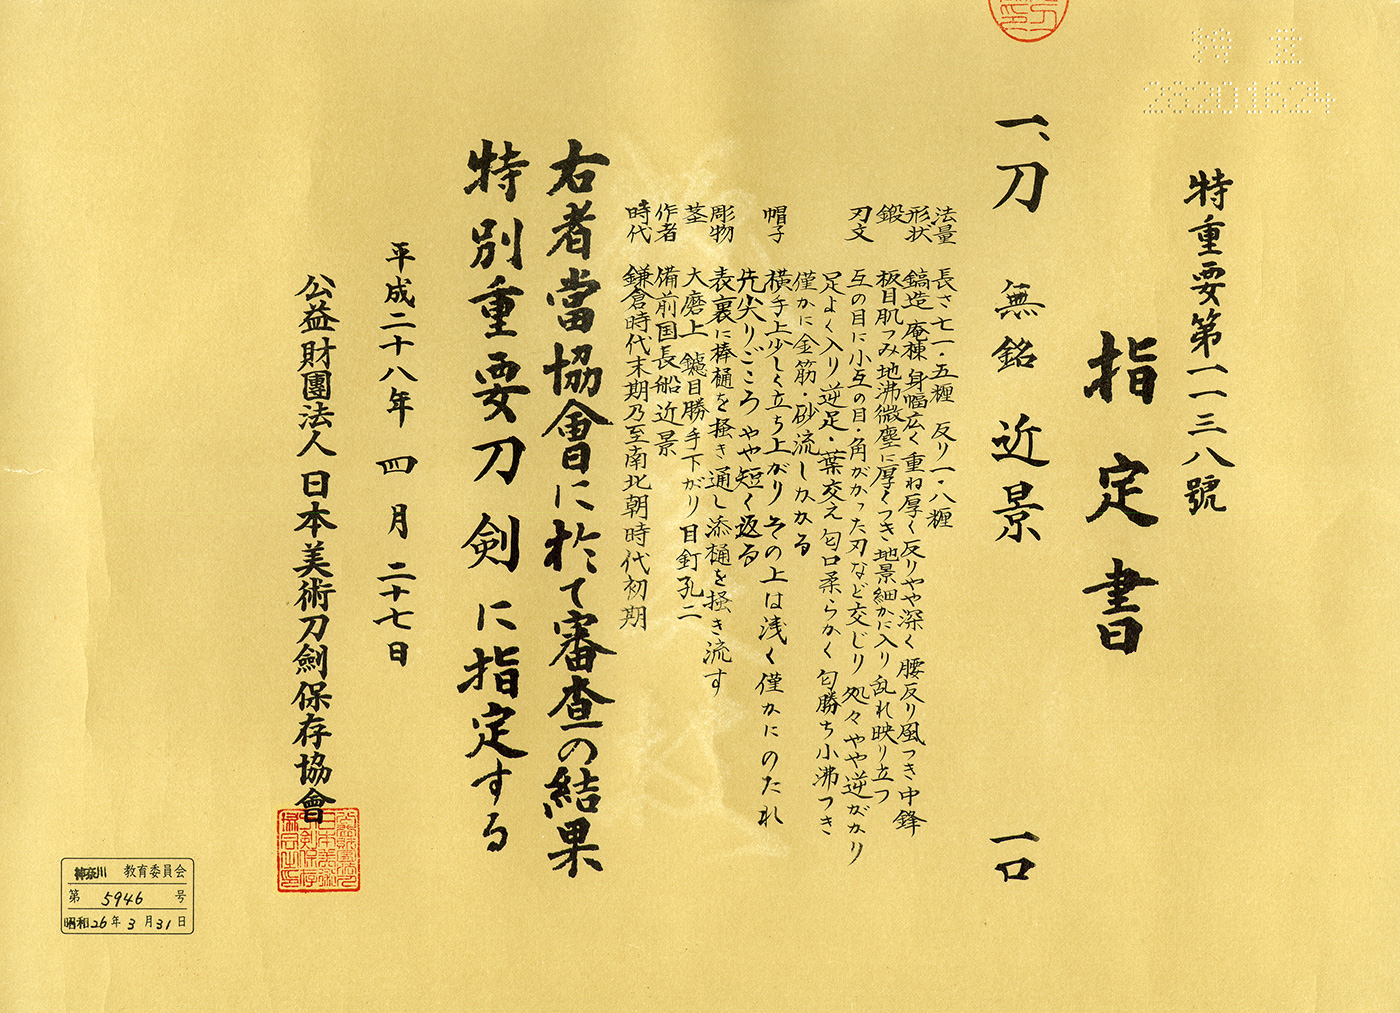 特重
28201624
特重要第一一三八號
指定書
一、刀 無銘 近景 一口
法量 長さ七一・五糎 反り一・八糎
形状 鎬造 庵棟 身幅広く 重ね厚く 反りやや深く 腰反り風つき 中鋒
鍛 板目肌つみ 地沸微塵に厚くつき 地景細かに入り 乱れ映り立つ
刃文 互の目に小互の目・角がかった刃など交じり 処々やや逆がかり
足よく入り 逆足・葉交え 匂口柔らかく 匂勝ち小沸つき
僅かに金筋・砂流しかかる
帽子 横手上少しく立ち上がり その上は浅く僅かにのたれ
先尖りごころ やや短く返る
彫物 表裏に棒樋を掻き通し 添樋を掻き流す
茎 大磨上 鑢目勝手下がり 目釘孔二
作者 備前国長船近景
時代 鎌倉時代末期乃至南北朝時代初期
右者當協會に於て審査の結果
特別重要刀剣に指定する
平成二十八年 四月 二十七日
公益財團法人 日本美術刀劍保存協會
神奈川 教育委員会
第 5946 号
昭和26年3月31日